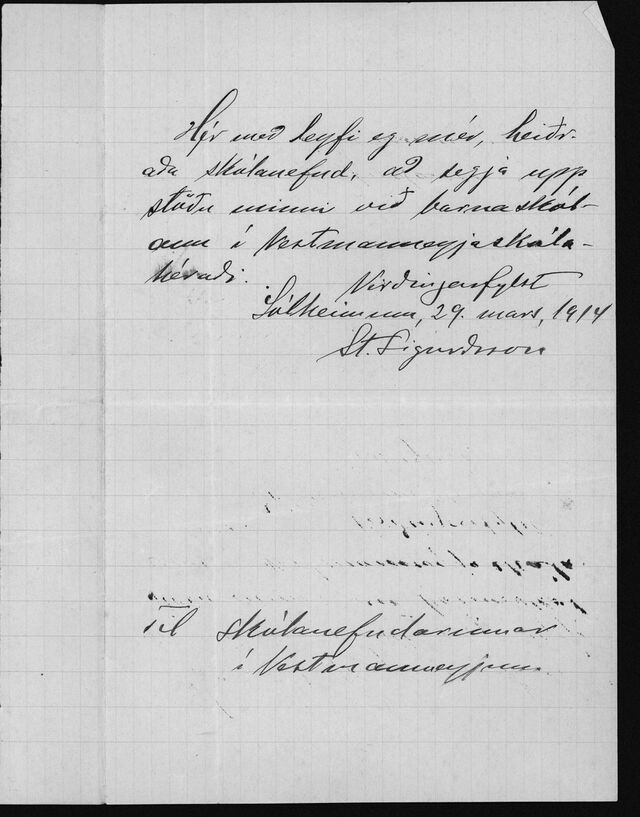 Hér með leyfi eg mér, heiðr-
aða skólanefnd, að segja upp
stöðu minni við barnaskól-
ann í Vestmannaeyjaskóla-
héraði.
Virðingarfylst
Sólheimum, 29. mars, 1914
St. Sigurðsson
Til skólanefndarinnar
í Vestmannaeyjum